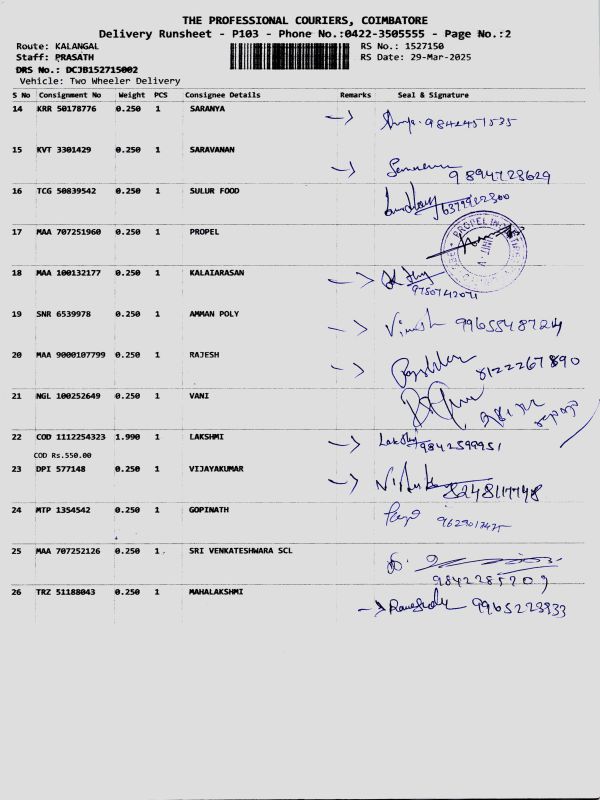 THE PROFESSIONAL COURIERS, COIMBATORE
Delivery Runsheet - P103 - Phone No.:0422-3505555 - Page No.:2
Route: KALANGAL RS No.: 1527150
Staff: PRASATH RS Date: 29-Mar-2025
DRS No.: DCJB152715002
Vehicle: Two Wheeler Delivery
S No Consignment No Weight PCS Consignee Details Remarks Seal & Signature
14 KRR 50178776 0.250 1 SARANYA
9842451535
15 KVT 3301429 0.250 1 SARAVANAN
9894728629
16 TCG 50839542 0.250 1 SULUR FOOD
6379922300
17 MAA 707251960 0.250 1 PROPEL
18 MAA 100132177 0.250 1 KALAIARASAN
9750742071
19 SNR 6539978 0.250 1 AMMAN POLY
9965548724
20 MAA 9000107799 0.250 1 RAJESH
8122267890
21 NGL 100252649 0.250 1 VANI
22 COD 1112254323 1.990 1 LAKSHMI
9842599951
COD Rs.550.00
23 DPI 577148 0.250 1 VIJAYAKUMAR
8248117748
24 MTP 1354542 0.250 1 GOPINATH
25 MAA 707252126 0.250 1 SRI VENKATESHWARA SCL
9842285209
26 TRZ 51188043 0.250 1 MAHALAKSHMI
9965223933